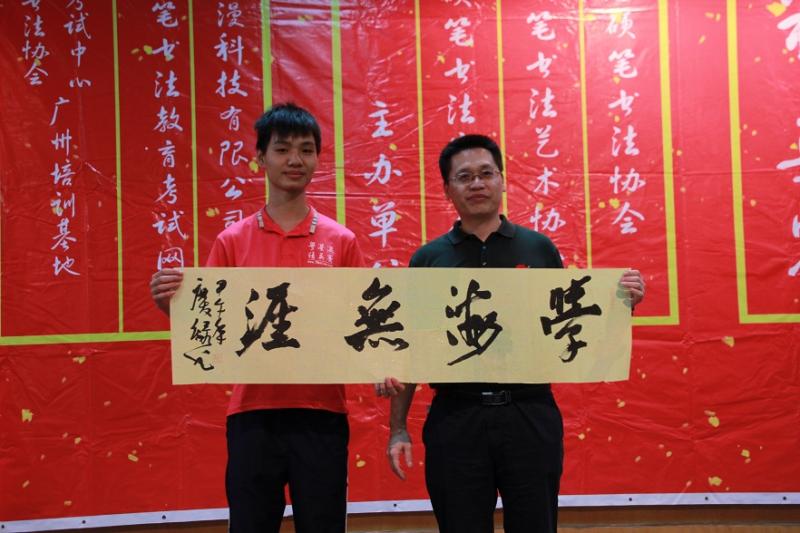 硬笔书法协会
笔书法艺术协
笔书法
主办单
漫科技有限公司
笔书法教育考试网
考试中心
广州培训基地
书法协会
學海無涯
甲午年